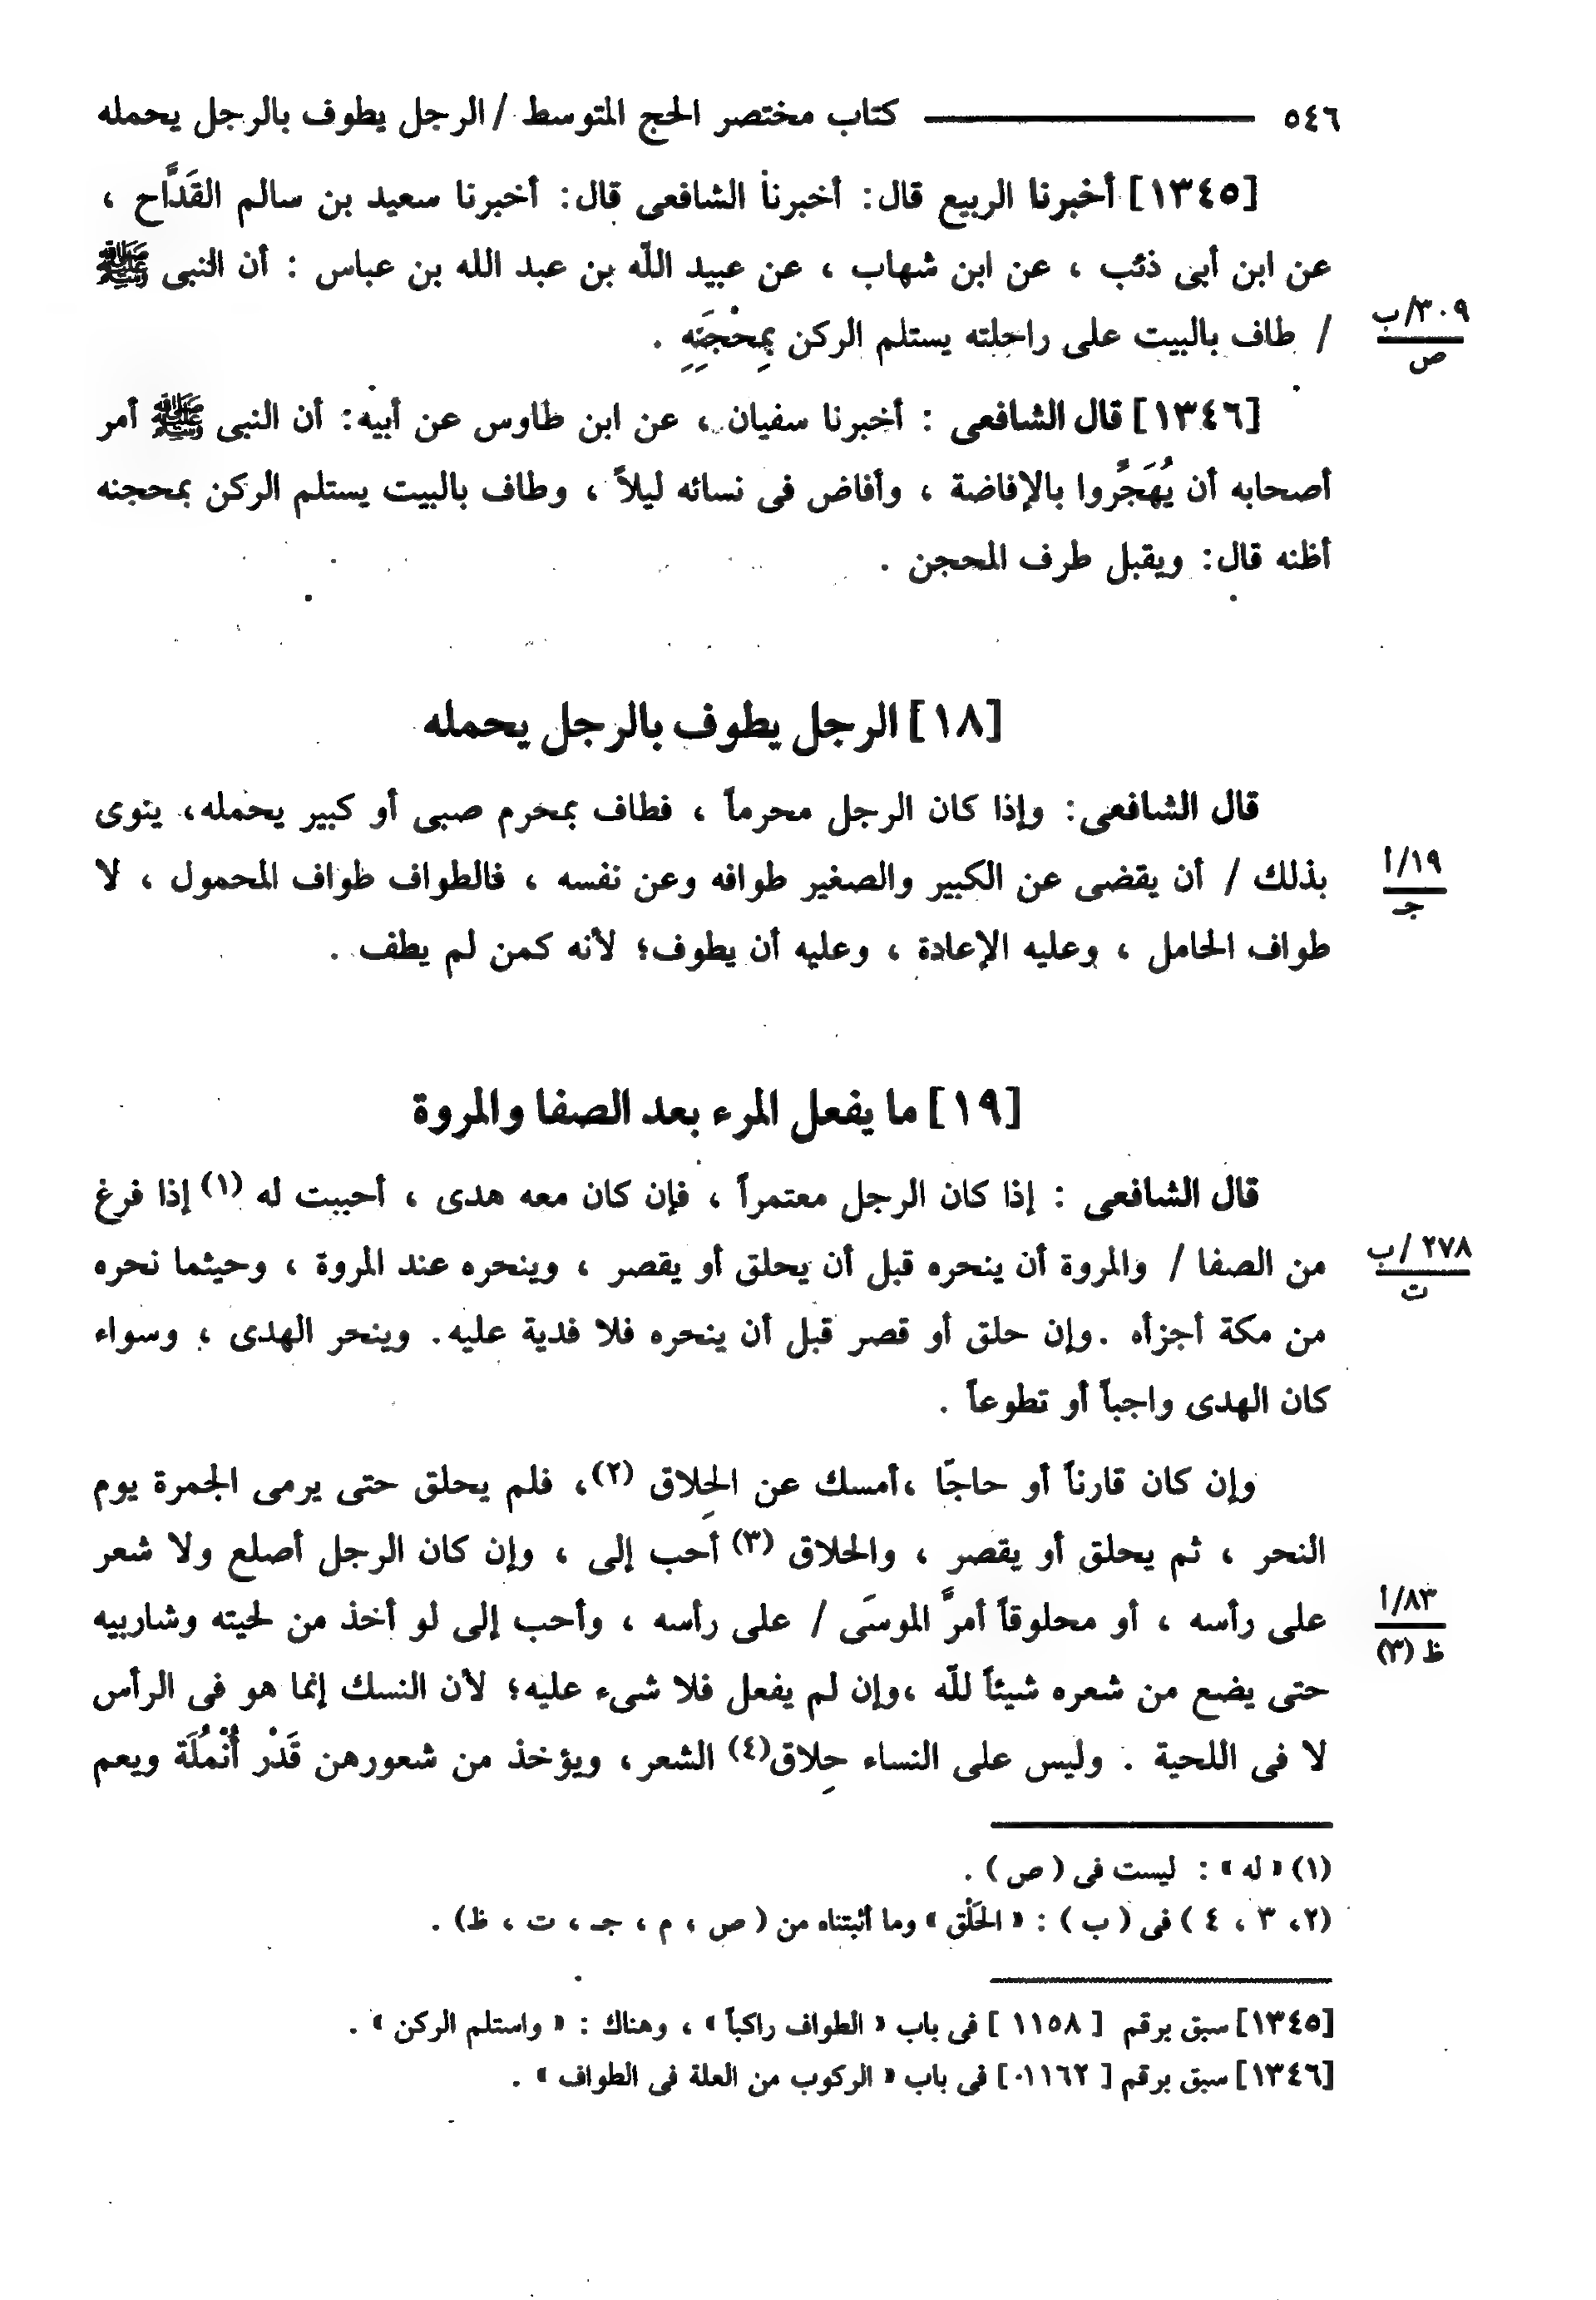 ٥٤٦ كتاب مختصر الحج المتوسط / الرجل يطوف بالرجل يحمله
[١٣٤٥] أخبرنا الربيع قال: أخبرنا الشافعى قال: أخبرنا سعيد بن سالم القَدَّاح ،
عن ابن أبى ذئب ، عن ابن شهاب ، عن عبيد اللّه بن عبد الله بن عباس : أن النبى ﷺ
٣٠٩/ب
ص
/ طاف بالبيت على راحلته يستلم الركن بِمِحْجَنِهِ .
[١٣٤٦] قال الشافعى : أخبرنا سفيان ، عن ابن طاوس عن أبيه: أن النبى ﷺ أمر
أصحابه أن يُهَجِّروا بالإفاضة ، وأفاض فى نسائه ليلاً ، وطاف بالبيت يستلم الركن بمحجنه
أظنه قال: ويقبل طرف المحجن .
[١٨] الرجل يطوف بالرجل يحمله
قال الشافعى: وإذا كان الرجل محرماً ، فطاف بمحرم صبى أو كبير يحمله، ينوى
١٩/أ
جـ
بذلك / أن يقضى عن الكبير والصغير طوافه وعن نفسه ، فالطواف طواف المحمول ، لا
طواف الحامل ، وعليه الإعادة ، وعليه أن يطوف؛ لأنه كمن لم يطف .
[١٩] ما يفعل المرء بعد الصفا والمروة
قال الشافعى : إذا كان الرجل معتمراً ، فإن كان معه هدى ، أحببت له (١) إذا فرغ
٢٧٨ /ب
ت
من الصفا / والمروة أن ينحره قبل أن يحلق أو يقصر ، وينحره عند المروة ، وحيثما نحره
من مكة أجزأه .وإن حلق أو قصر قبل أن ينحره فلا فدية عليه. وينحر الهدى ، وسواء
كان الهدى واجباً أو تطوعاً .
وإن كان قارناً أو حاجّا ،أمسك عن الحِلاق (٢)، فلم يحلق حتى يرمى الجمرة يوم
النحر ، ثم يحلق أو يقصر ، والحلاق (٣) أحب إلى ، وإن كان الرجل أصلع ولا شعر
٨٣/أ
ظ (٣)
على رأسه ، أو محلوقاً أمرَّ الموسَى / على رأسه ، وأحب إلى لو أخذ من لحيته وشاربيه
حتى يضع من شعره شيئاً للّه ،وإن لم يفعل فلا شىء عليه؛ لأن النسك إنما هو فى الرأس
لا فى اللحية . وليس على النساء حِلاق(٤) الشعر، ويؤخذ من شعورهن قَدْر أُنْمُلَة ويعم
(١) « له » : ليست فى ( ص ) .
(٢، ٣ ، ٤ ) فى ( ب ) : « الحَلْق » وما أثبتناه من ( ص ، م ، جـ ، ت ، ظ) .
[١٣٤٥] سبق برقم [ ١١٥٨ ] فى باب « الطواف راكباً » ، وهناك : « واستلم الركن » .
[١٣٤٦] سبق برقم [ ١١٦٢ ] فى باب « الركوب من العلة فى الطواف » .